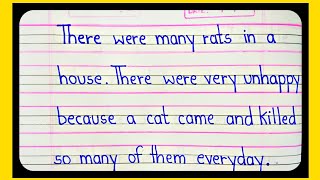 There were many rats in a
house. There were very unhappy
because a cat came and killed
so many of them everyday.